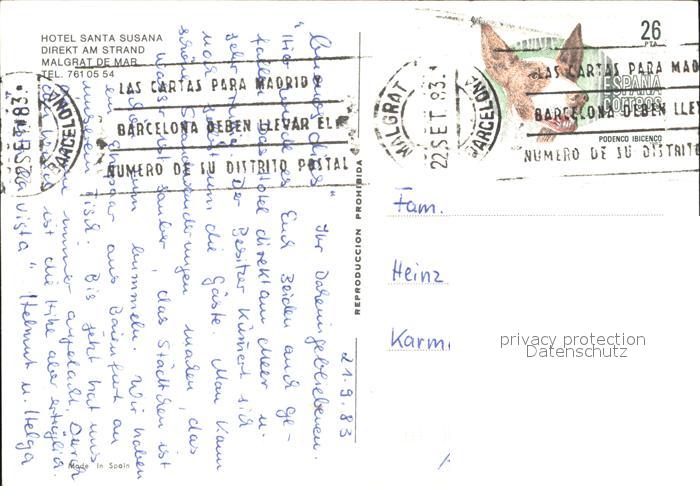 HOTEL SANTA SUSANA
DIREKT AM STRAND
MALGRAT DE MAR
TEL. 761 05 54
LAS CARTAS PARA MADRID
BARCELONA DEBEN LLEVAR EL
NUMERO DE SU DISTRITO POSTAL
BARCELONA
SET. 83
MALGRAT
22 SET. 83
BARCELONA
LAS CARTAS PARA MAD
BARCELONA DEBEN LLEV
NUMERO DE SU DISTRITO
26
PTA
ESPAÑA
correos
PODENCO IBICENCO
21.9.83
" Ihr Daheimgebliebenen.
Hier es Euch beiden auch ge-
fallen. Hotel direkt am Meer u.
sehr Der Besitzer kümert sich
noch um die Gäste. Man kann
schöne Strandwanderungen machen, das
Wasser ist sauber, das Städtchen ist
zum bummeln. Wir haben
ein Ehepaar aus Baienfurt an
unserem Tisch. Bis jetzt hat uns
immer angelacht. Durch
den Wind ist die Hitze aber erträglich.
vista" Helmut u. Helga
REPRODUCCION PROHIBIDA
Fam.
Heinz
Karm
privacy protection
Datenschutz
Made In Spain